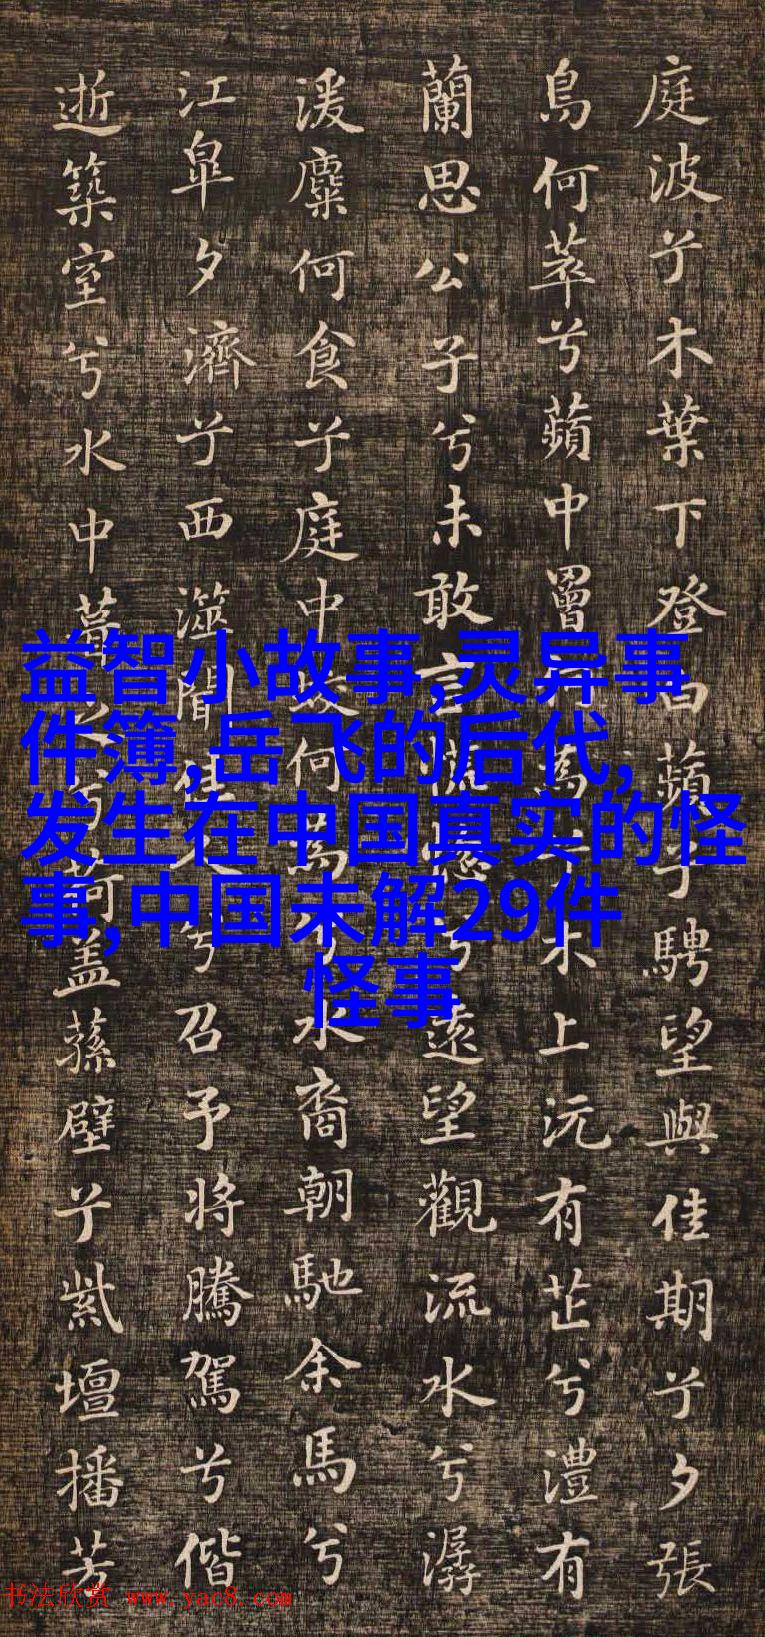 庭波兮木葉下登白蘋兮騁望與佳期兮夕張
鳥何萃兮蘋中罾何為兮木上沅有芷兮澧有
蘭思公子兮未敢言兮遠望觀流水兮潺
湲麋何食兮庭中蛟何為兮水裔朝馳余馬兮
江皐夕濟兮西澨聞佳人兮召予將騰駕兮偕
逝築室兮水中葺之兮荷蓋蓀壁兮紫壇播芳
益智小故事,灵异事
件簿,岳飞的后代,
发生在中国真实的怪
事,中国未解29件
怪事
书法欣赏 www.yac8.com